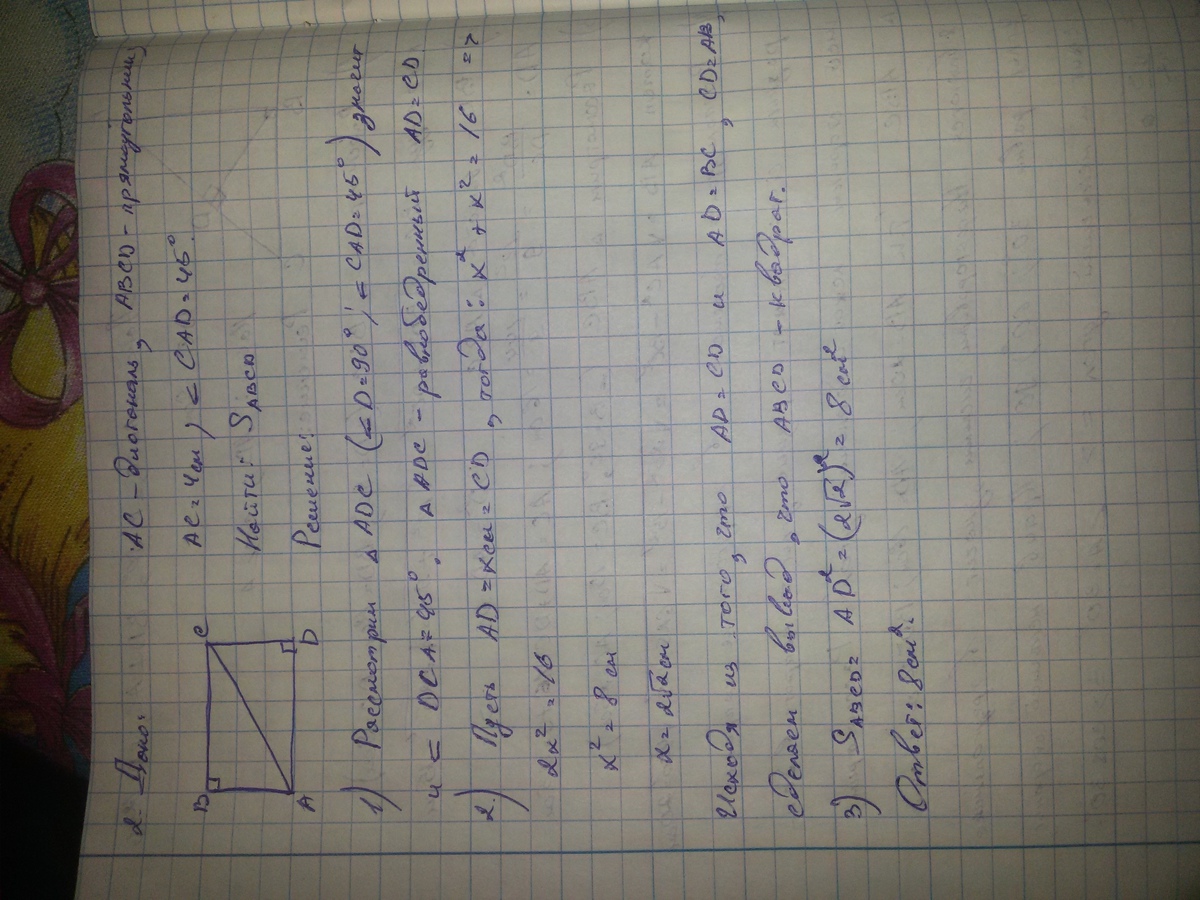 2. Дано: AC - диагональ, ABCD - прямоугольник,
AC = 4см, < CAD = 45°.
Найти: S ABCD
Решение:
B C
A D
1) Рассмотрим △ ADC (<D=90°, < CAD = 45°) значит
и < DCA = 45°. △ ADC - равнобедренный AD = CD
2.) Пусть AD = xсм = CD, тогда: x² + x² = 16 =>
2x² = 16
x² = 8 см
x = 2√2см
Исходя из того, что AD = CD и AD = BC, CD = AB,
сделаем вывод, что ABCD - квадрат.
3) S ABCD = AD² = (2√2)² = 8 см²
Ответ: 8см².